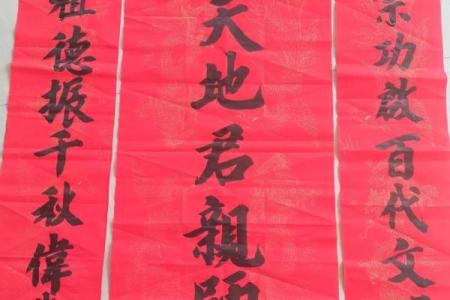 祖德振千秋偉
天地君親師
宗功啟百代文